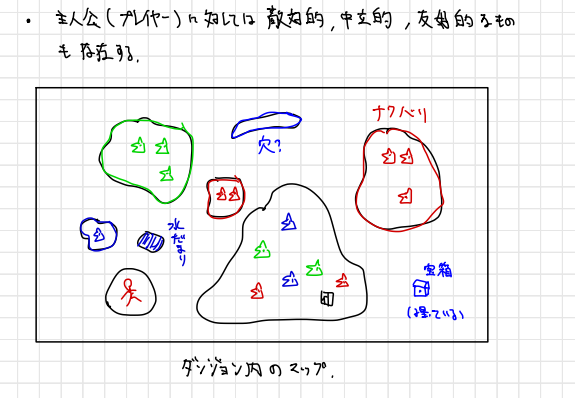 ・ 主人公(プレイヤー)に対しては 敵対的, 中立的, 友好的なもの
も存在する.
ナワバリ
穴?
水だまり
宝箱
ダンジョン内のマップ.